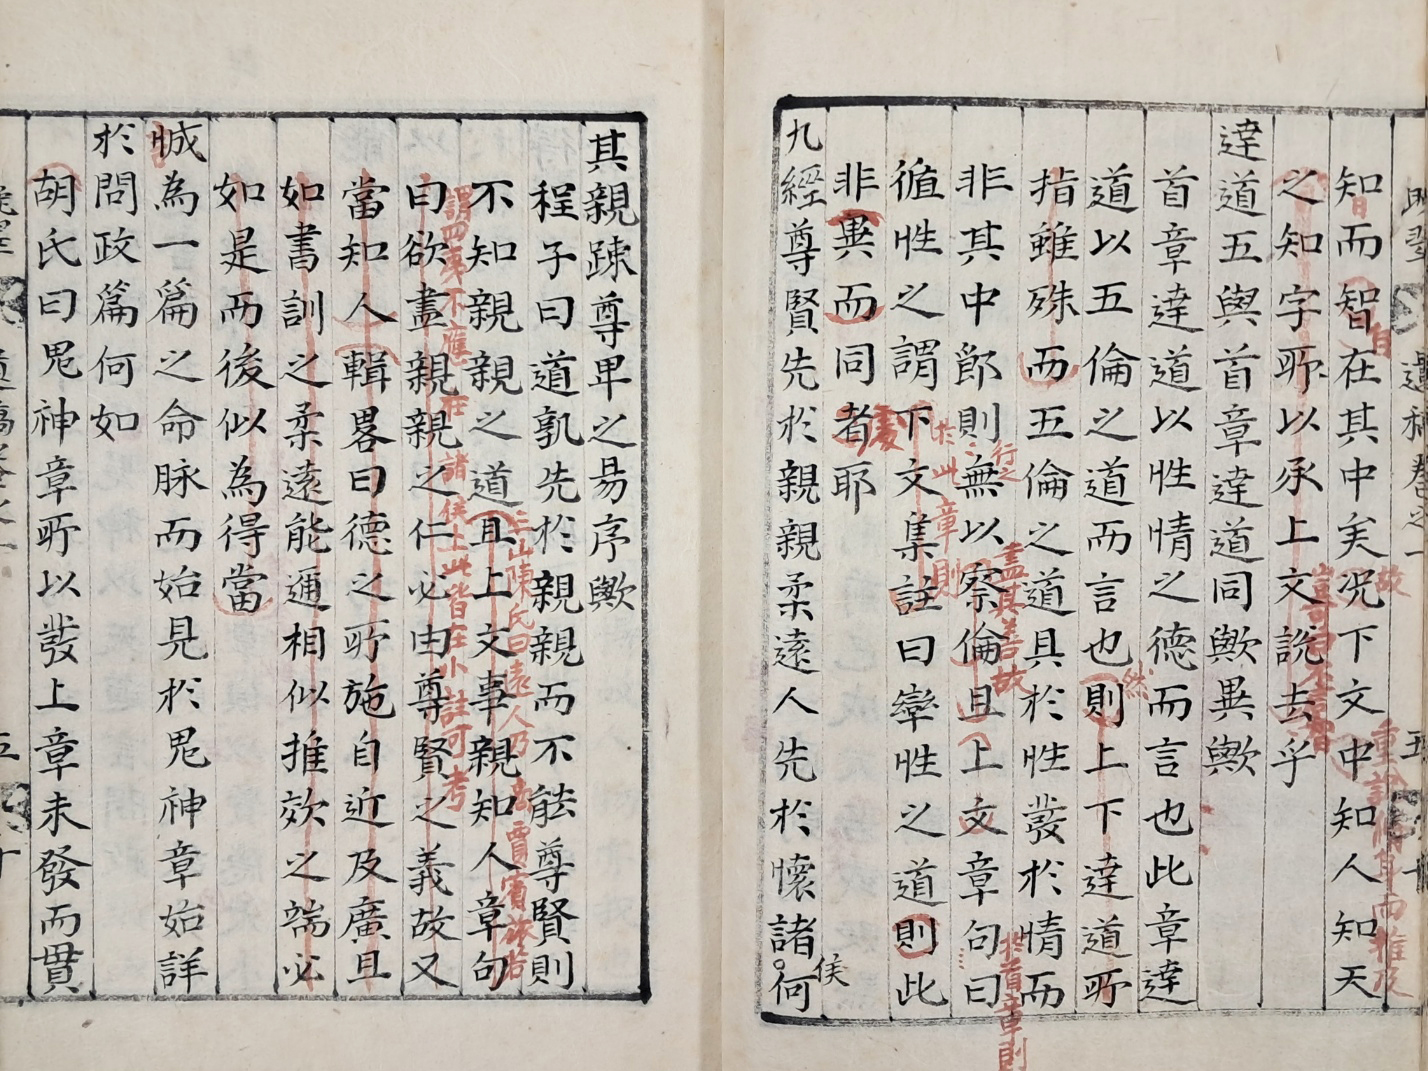 知而智在其中矣况下文中知人知天
之知字所以承上文說去乎
達道五與首章達道同歟異歟
首章達道以性情之德而言也此章達
道以五倫之道而言也則上下達道所
指雖殊而五倫之道具於性發於情而
非其中郎則無以察倫且上文章句曰
循性之謂下文集註曰率性之道則此
非異而同者耶
九經尊賢先於親親柔遠人先於懷諸何
侯
其親踈尊卑之易序歟
程子曰道孰先於親親而不能尊賢則
不知親親之道且上文事親知人章句
曰欲盡親親之仁必由尊賢之義故又
當知人輯畧曰德之所施自近及廣且
如書訓之柔遠能邇相似推效之端必
如是而後似為得當
誠為一篇之命脉而始見於鬼神章始詳
於問政篇何如
胡氏曰鬼神章所以發上章未發而貫
故
重論脩身而推及
然
行之
盡其善故
於首章則
於此章則
三山陳氏曰遠人乃
賈賓旅若
謂四夷不應在諸侯上此皆在小註可考